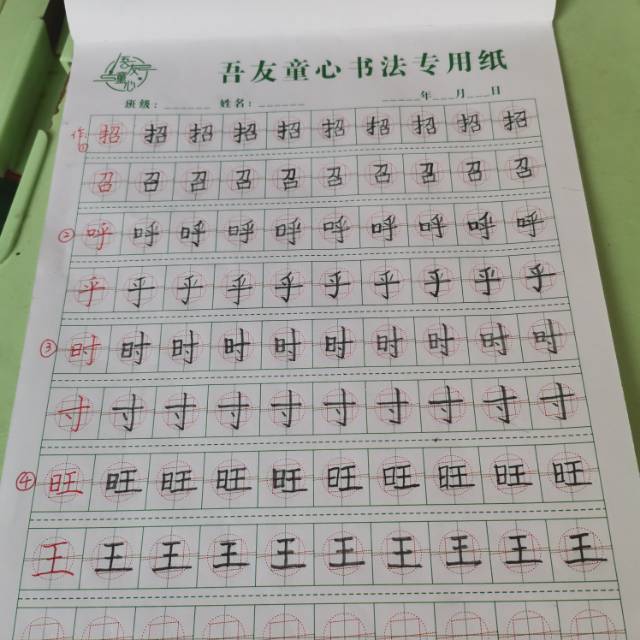 吾友童心
吾友童心书法专用纸
班级： 姓名： 年 月 日
作 招 招 招 招 招 招 招 招 招 招
召 召 召 召 召 召 召 召 召 召
② 呼 呼 呼 呼 呼 呼 呼 呼 呼 呼
乎 乎 乎 乎 乎 乎 乎 乎 乎 乎
③ 时 时 时 时 时 时 时 时 时 时
寸 寸 寸 寸 寸 寸 寸 寸 寸 寸
④ 旺 旺 旺 旺 旺 旺 旺 旺 旺 旺
王 王 王 王 王 王 王 王 王 王